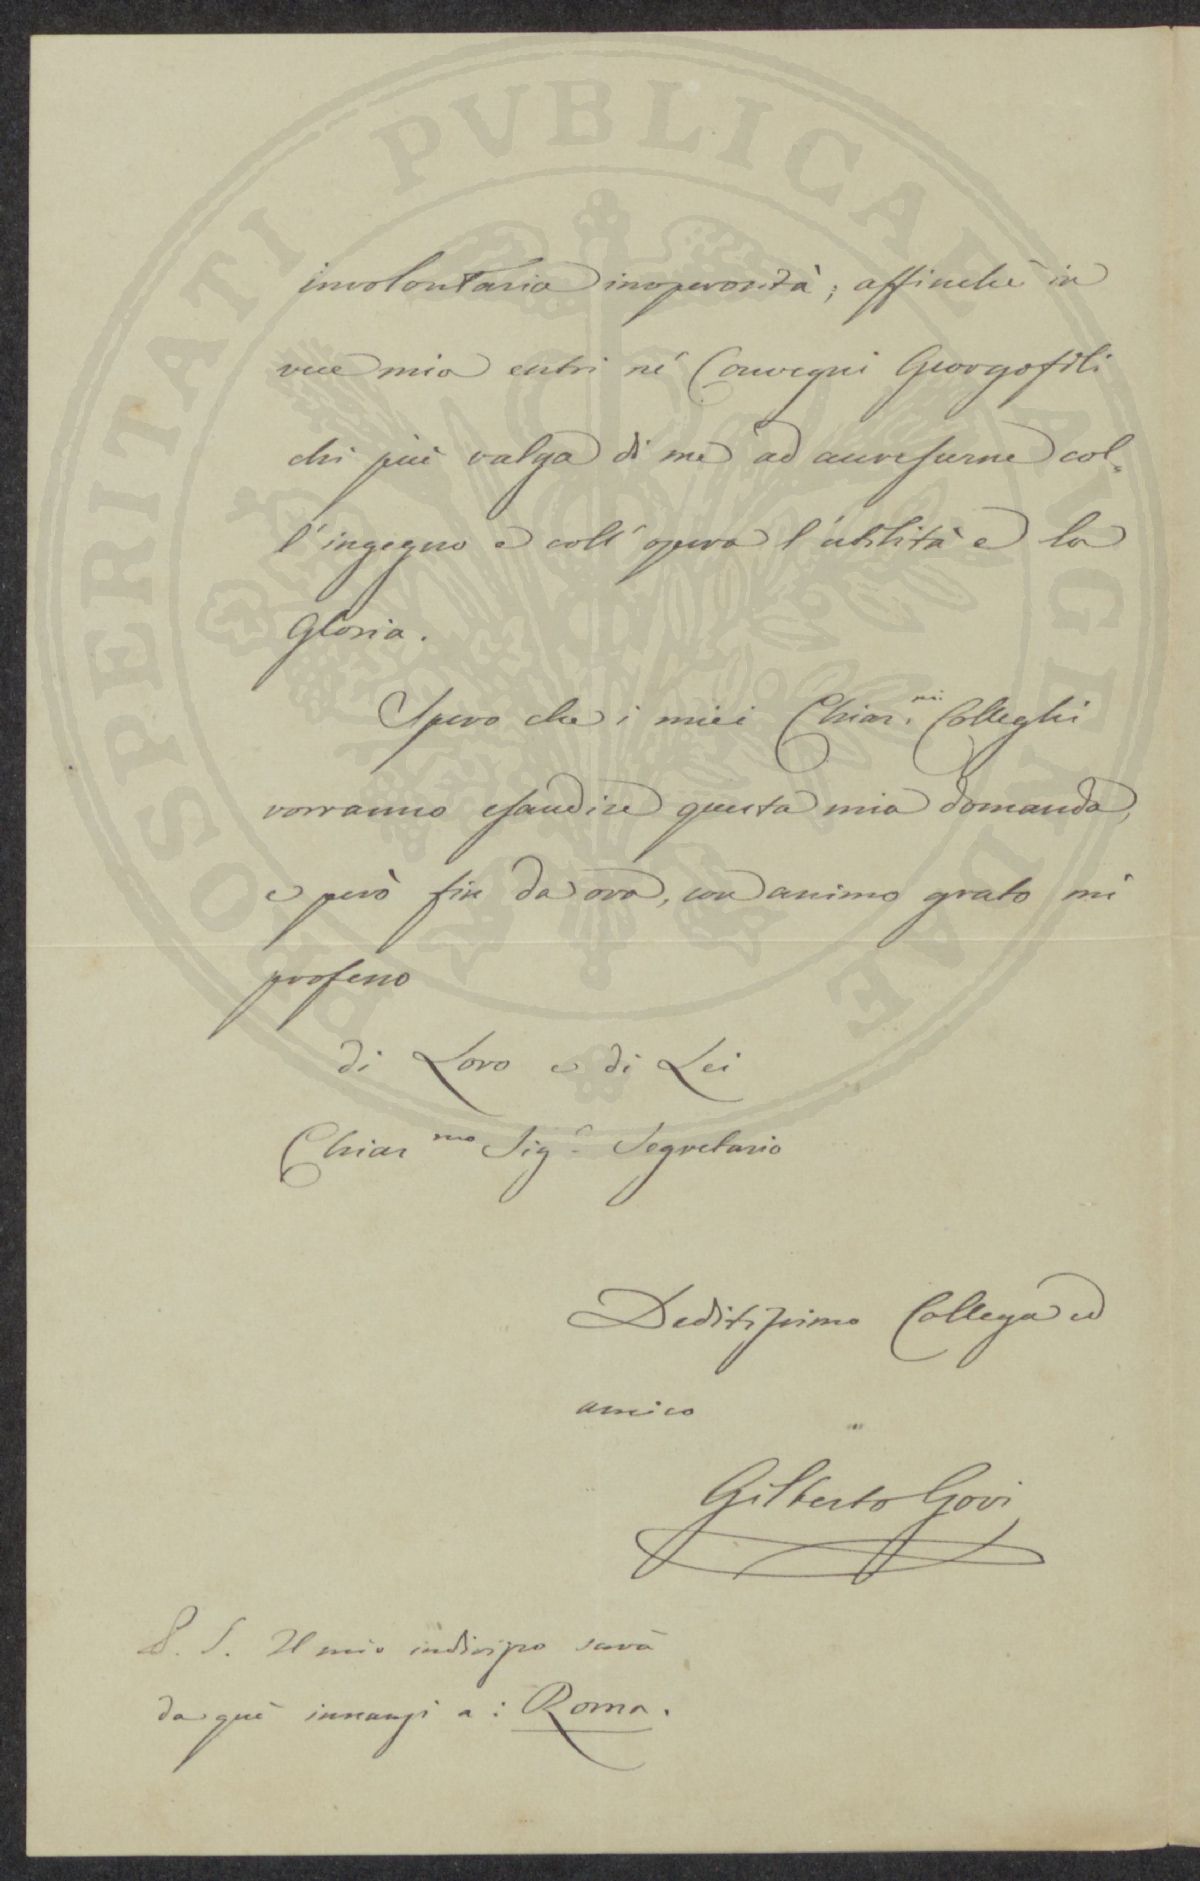 PROSPERITATI PVBLICAE AVGENDAE
involontaria inoperosità; affinchè in
vece mia entri né Convegni Georgofili
chi più valga di me ad accrescerne col-
l'ingegno e coll'opera l'utilità e la
Gloria.
Spero che i miei Chiar.mi Colleghi
vorranno esaudire questa mia domanda,
e però fin da ora, con animo grato mi
professo
di Loro e di Lei
Chiar mo Sigr Segretario
Deditissimo Collega ed
amico
Gilberto Govi
P. S. Il mio indirizzo sarà
da quì innanzi a: Roma.